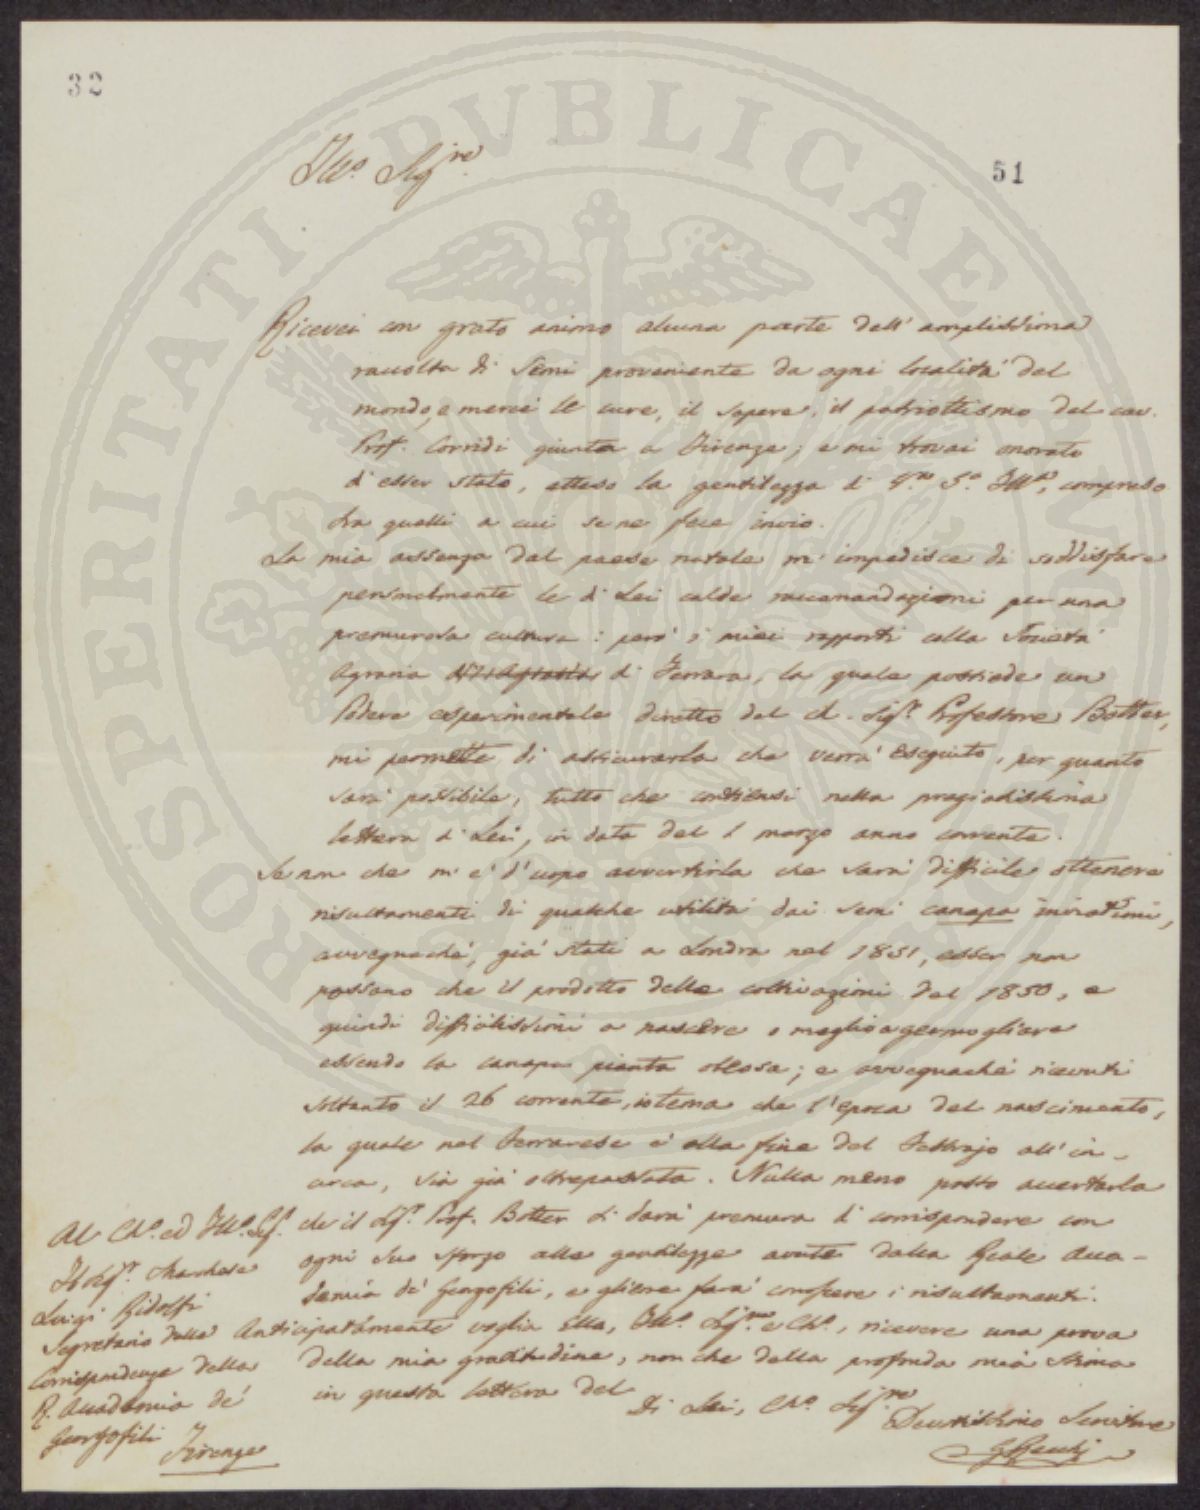 32
51
Ill.º Sig.re
Ricevei con grato animo alcuna parte dell' amplissima
raccolta di semi proveniente da ogni località del
mondo, e mercè le cure, il sapere, il patriottismo del cav.
Prof. Corridi giunta a Firenze; e mi trovai onorato
d' esser stato, atteso la gentilezza di V.ra S.a Ill.ma, compreso
tra quelli a cui se ne fece invio.
La mia assenza dal paese natale m' impedisce di soddisfare
personalmente le di Lei calde raccomandazioni per una
premurosa cultura: però i miei rapporti colla Società
Agraria di Ferrara, la quale possiede un
Podere esperimentale diretto dal ch. Sig.r Professore Botter,
mi permette di assicurarla che verrà eseguito, per quanto
sarà possibile, tutto che contiensi nella pregiatissima
lettera di Lei, in data del 1 marzo anno corrente.
Se non che m' è d' uopo avvertirla che sarà difficile ottenere
risultamenti di qualche utilità dai semi canapa inviatimi,
avvegnachè, già stati a Londra nel 1851, esser non
possano che il prodotto delle coltivazioni del 1850, e
quindi difficilissimi a nascere o meglio a germogliare
essendo la canapa pianta oleosa; e avvegnachè ricevuti
soltanto il 26 corrente, io tema che l' epoca del nascimento,
la quale nel Ferrarese è alla fine del Febbrajo all' in-
circa, sia già oltrepassata. Nulla meno posso accertarla
che il Sig.r Prof. Botter si darà premura di corrispondere con
ogni suo sforzo alle gentilezze avute dalla Reale Acca-
demia de' Georgofili, e gliene farà conoscere i risultamenti.
Anticipatamente voglia Ella, Ill.º Sig.re e Ch.º, ricevere una prova
della mia gratitudine, non che della profonda mia stima
in questa lettera del
Di Lei, Ch.º Sig.re
Devotissimo Servitore
Al Ch.º ed Ill.º Sig.
Il Sig.r Marchese
Luigi Ridolfi
Segretario delle
Corrispondenze della
R. Accademia de'
Georgofili
Firenze
PROSPERITATI PVBLICAE AVGENDAE